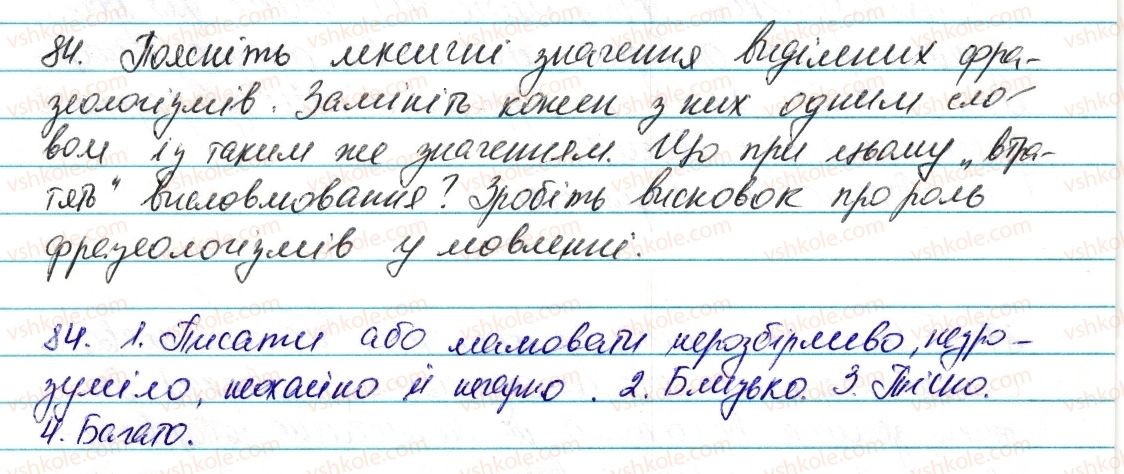 84. Поясніть лексичні значення виділених фра-
зеологізмів. Замініть кожен з них одним сло-
вом із таким же значенням. Що при цьому „втра-
тять" висловлювання? Зробіть висновок про роль
фразеологізмів у мовленні.
84. 1. Писати або малювати нерозбірливо, незро-
зуміло, неохайно й негарно. 2. Близько. 3. Тісно.
4. Багато.